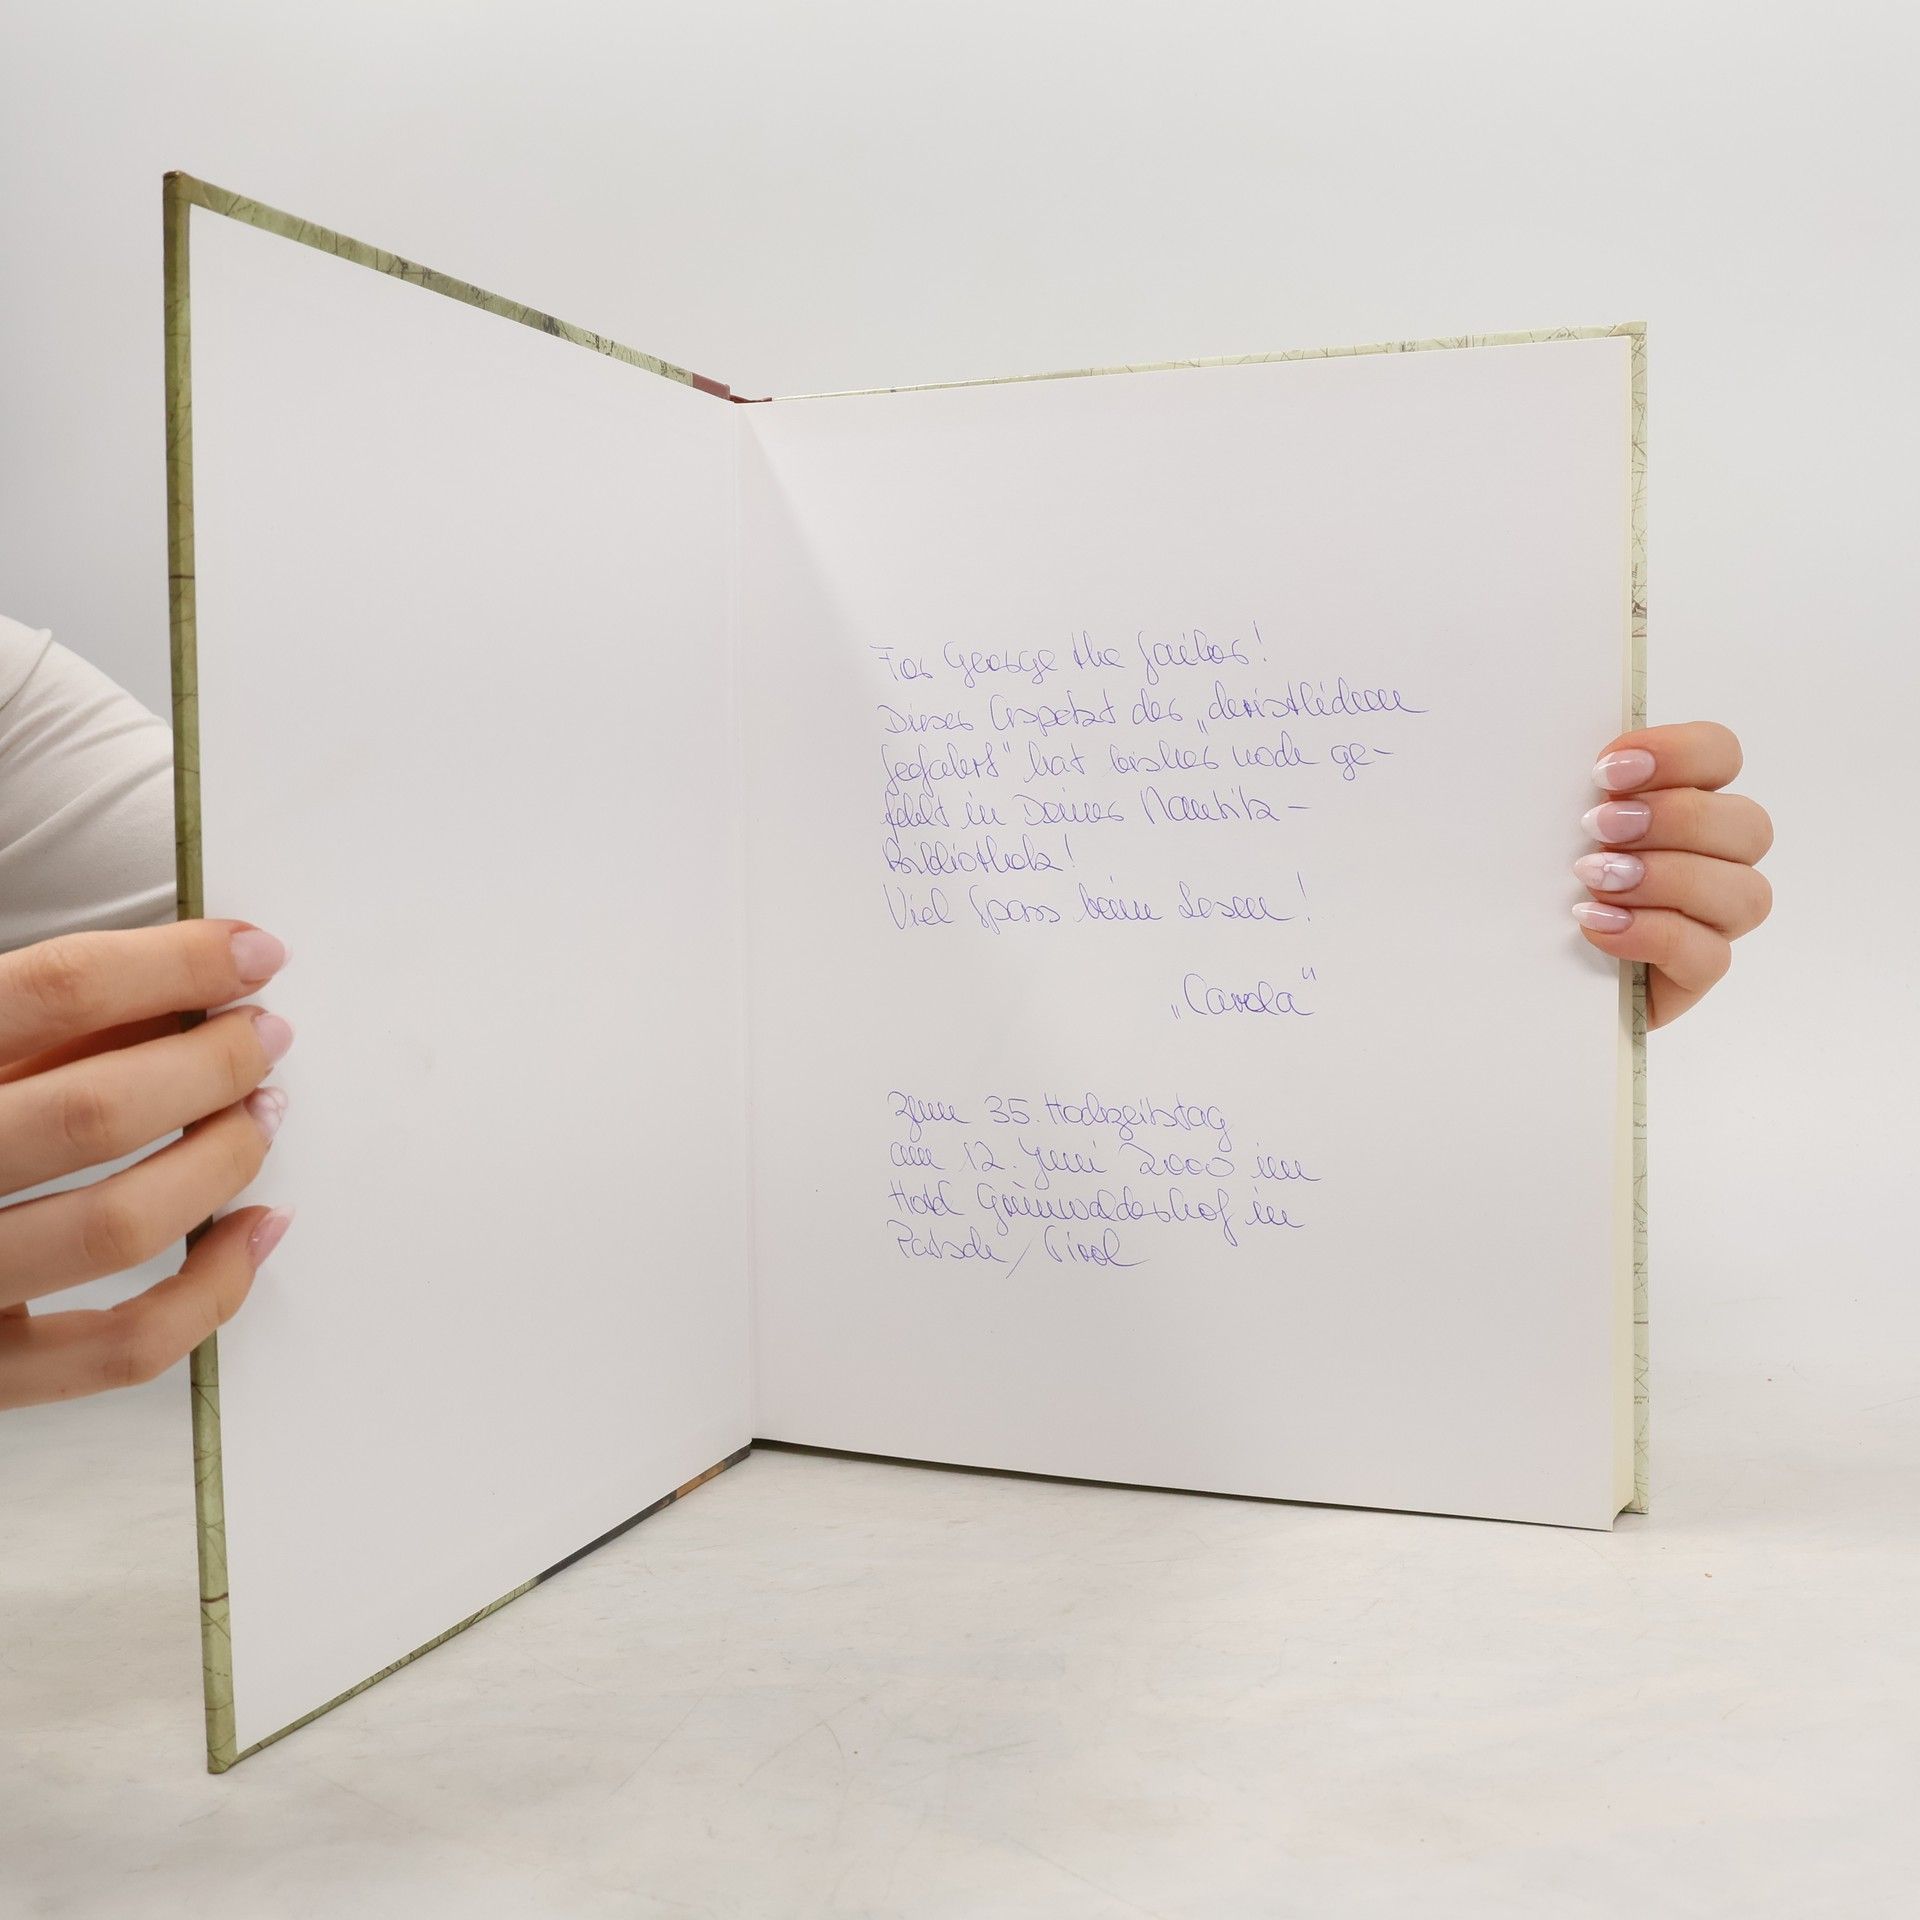 For George the Sailor!
Dieser Aspekt der „christlichen
Seefahrt“ hat bisher noch ge-
fehlt in Deiner Nautik-
Bibliothek!
Viel Spass beim Lesen!
„Carola“
Zum 35. Hochzeitstag
am 12. Juni 2000 im
Hotel Grünwalderhof in
Patsch / Tirol